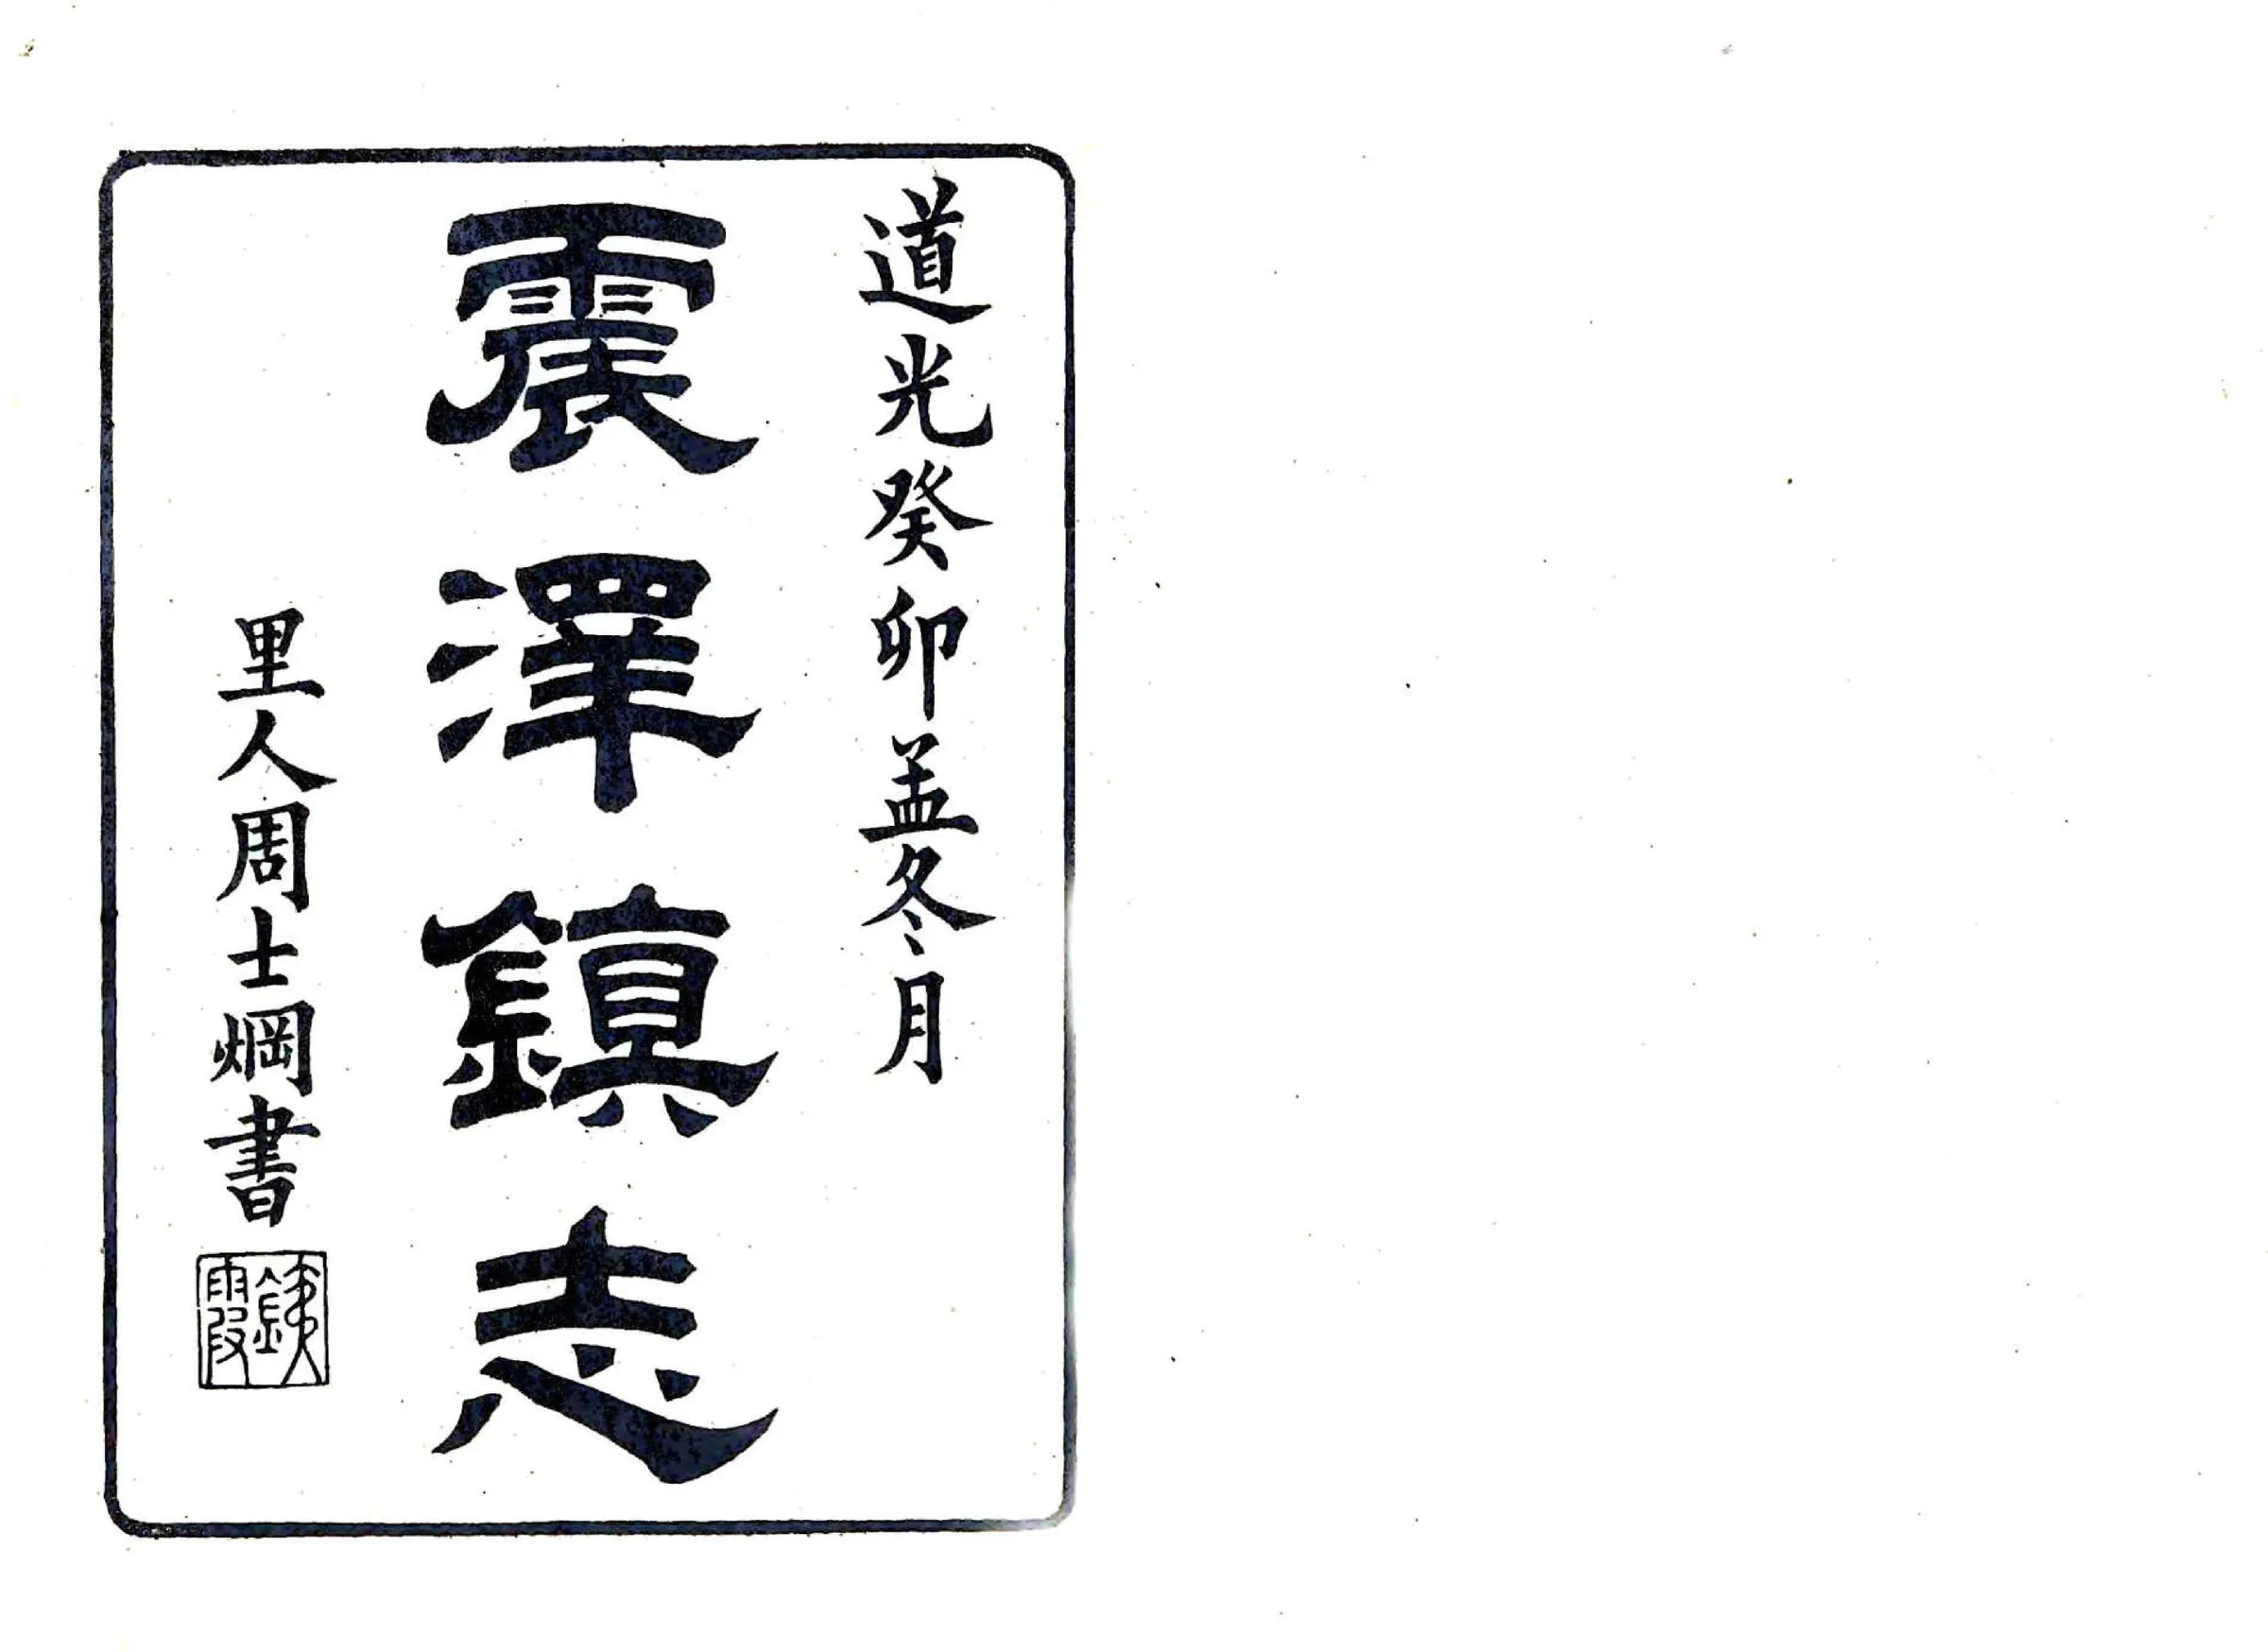 道光癸卯孟冬月
震澤鎮志
里人周士爟書